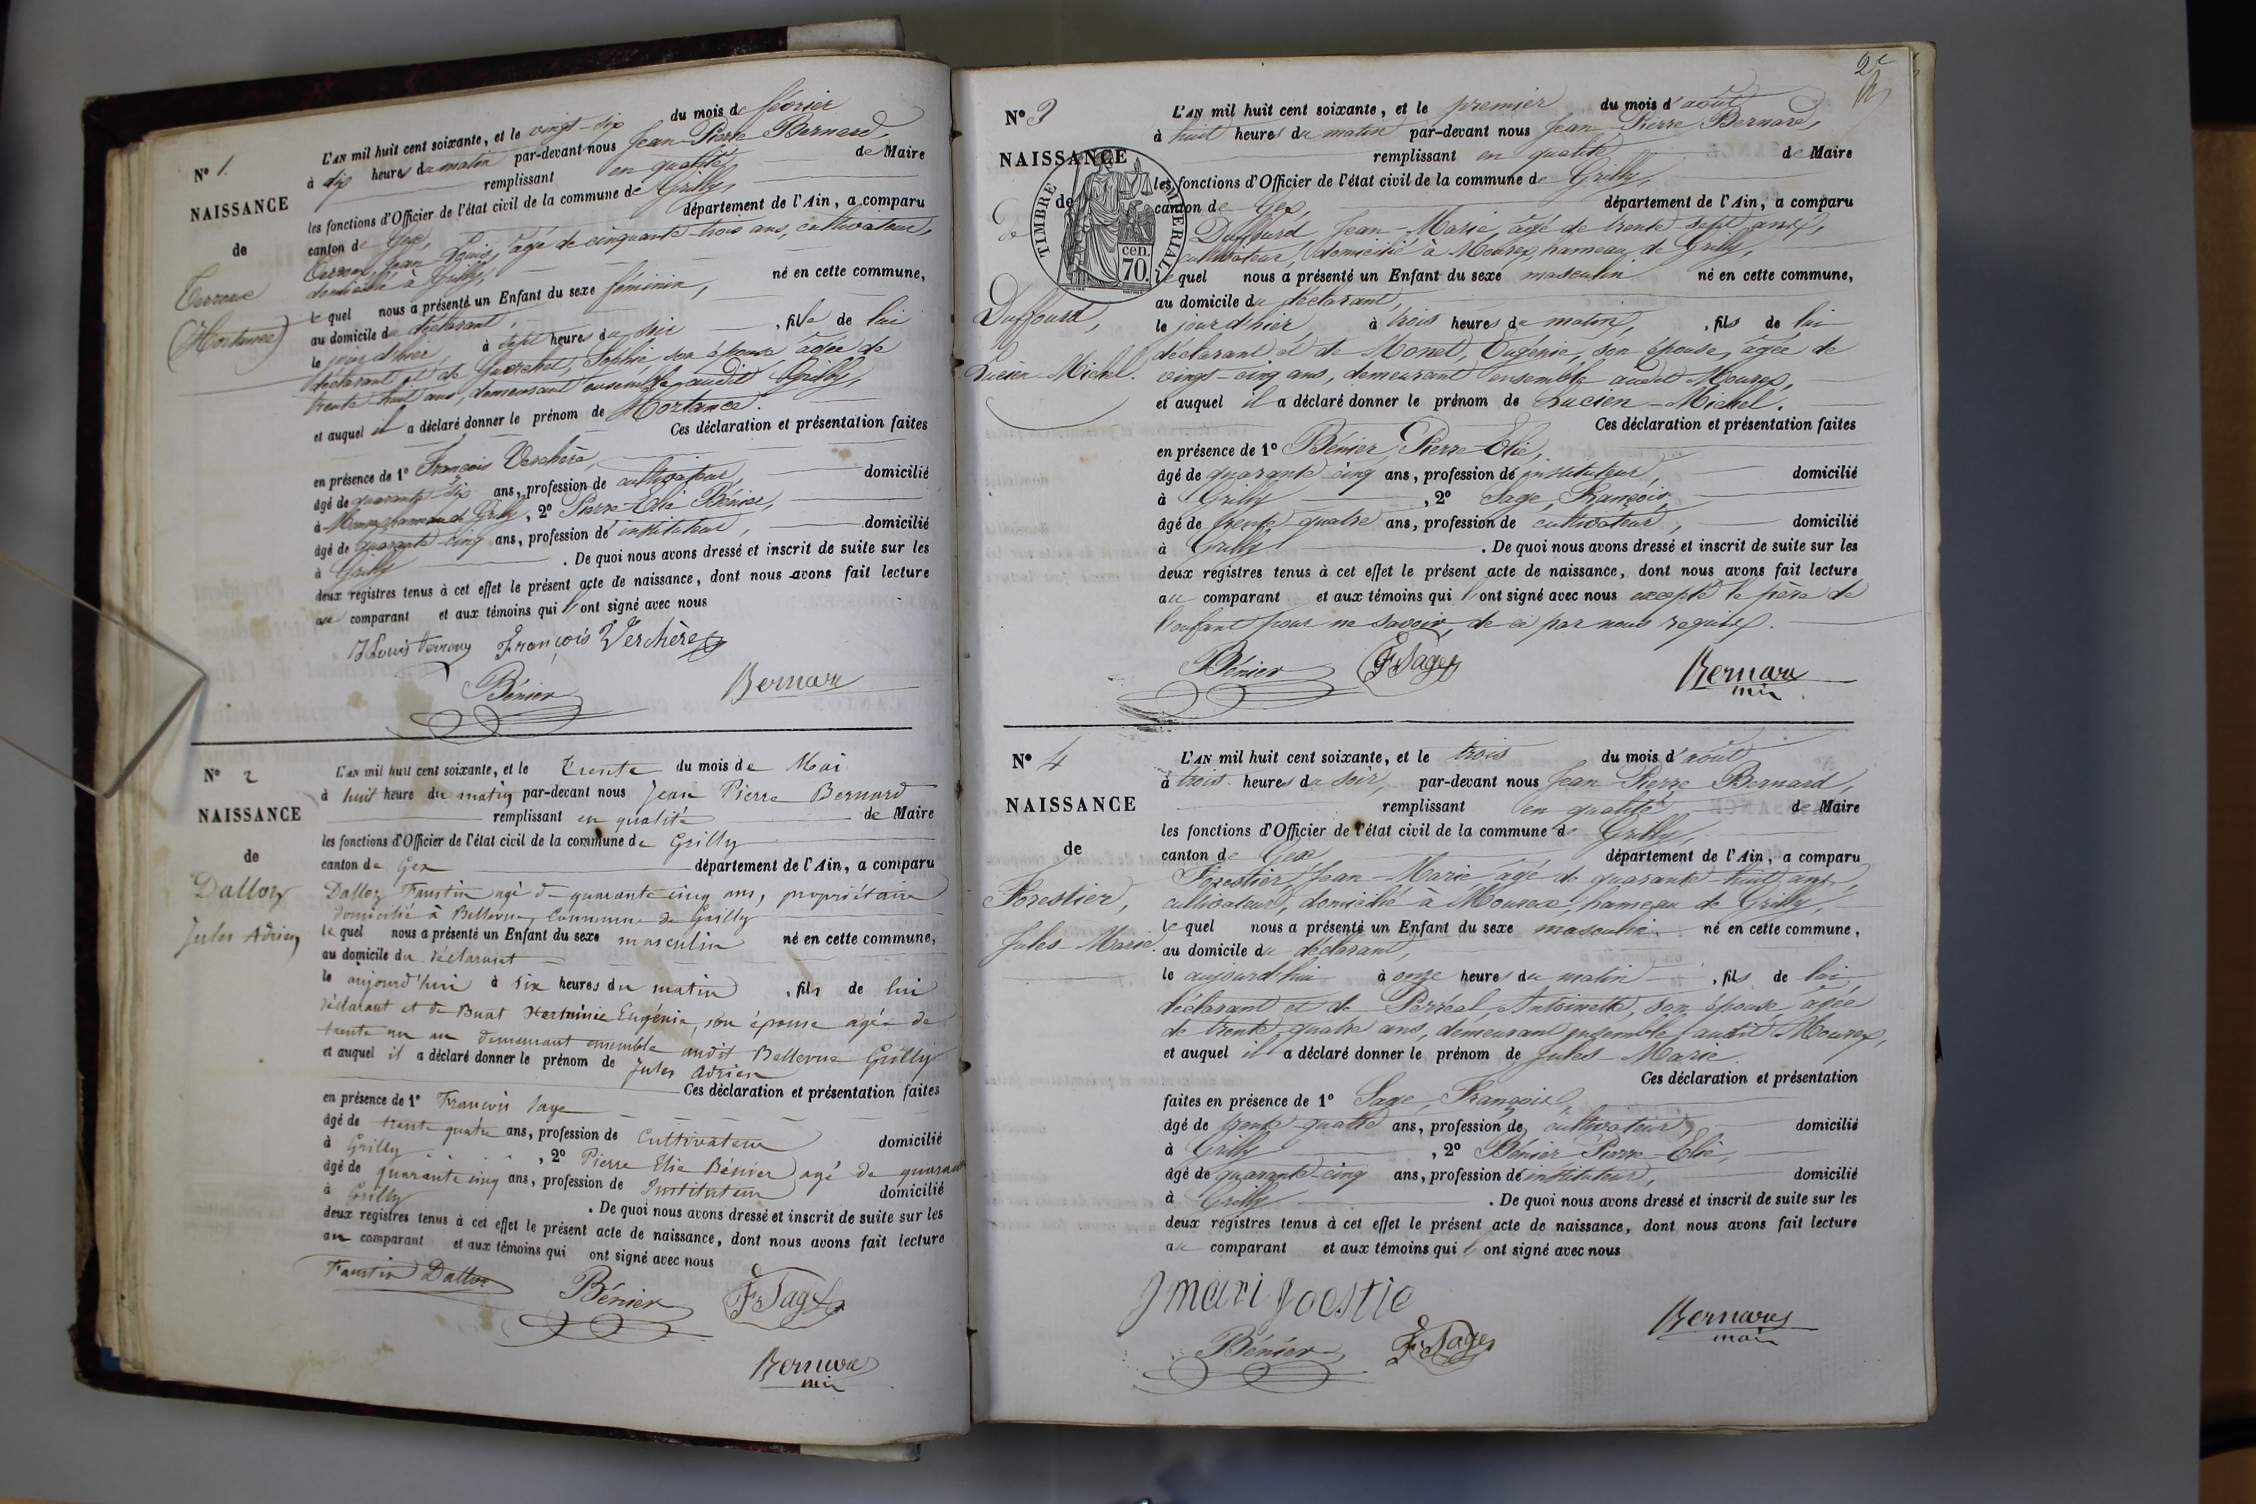 N° 1.
NAISSANCE
de
(Hortance)
L'AN mil huit cent soixante, et le vingt-six du mois de février
à dix heures du matin par-devant nous Jean-Pierre Bernard,
remplissant en qualité de Maire
les fonctions d'Officier de l'état civil de la commune de Grilly,
canton de Gex, département de l'Ain, a comparu
Jean-Louis, âgé de cinquante-trois ans, cultivateur,
domicilié à Grilly,
lequel nous a présenté un Enfant du sexe féminin, né en cette commune,
au domicile du déclarant,
le jour d'hier, à sept heures du soir, fille de lui
déclarant et de Sophie, son épouse âgée de
trente huit ans, demeurant ensemble audit Grilly,
et auquel il a déclaré donner le prénom de Hortance.
Ces déclaration et présentation faites
en présence de 1° François Verchère,
âgé de quarante-six ans, profession de cultivateur, domicilié
à Mourex hameau de Grilly, 2° Pierre-Elie Bénier,
âgé de quarante-cinq ans, profession de instituteur, domicilié
à Grilly. De quoi nous avons dressé et inscrit de suite sur les
deux registres tenus à cet effet le présent acte de naissance, dont nous avons fait lecture
au comparant et aux témoins qui l'ont signé avec nous
François Verchère
Bénier
Bernard
N° 2
NAISSANCE
de
Dalloz
Jules Adrien
L'AN mil huit cent soixante, et le Trente du mois de Mai
à huit heure du matin par-devant nous Jean Pierre Bernard
remplissant en qualité de Maire
les fonctions d'Officier de l'état civil de la commune de Grilly
canton de Gex département de l'Ain, a comparu
Dalloz Faustin agé de quarante cinq ans, propriétaire
domicilié à Bellevue, Commune de Grilly
lequel nous a présenté un Enfant du sexe masculin né en cette commune,
au domicile du déclarant
le aujourd'hui à six heures du matin, fils de lui
déclarant et de Buat Herminie Eugénie, son épouse agée de
trente un an demeurant ensemble audit Bellevue Grilly
et auquel il a déclaré donner le prénom de Jules Adrien
Ces déclaration et présentation faites
en présence de 1° François Sage
âgé de trente quatre ans, profession de Cultivateur domicilié
à Grilly, 2° Pierre Elie Bénier agé de quarante
âgé de quarante cinq ans, profession de Instituteur domicilié
à Grilly. De quoi nous avons dressé et inscrit de suite sur les
deux registres tenus à cet effet le présent acte de naissance, dont nous avons fait lecture
au comparant et aux témoins qui ont signé avec nous
Faustin Dalloz
Bénier
F Sage
Bernard
N° 3
NAISSANCE
de
Duffourd,
Lucien-Michel.
TIMBRE IMPERIAL.
cen. 70.
L'AN mil huit cent soixante, et le premier du mois d'août
à huit heures du matin par-devant nous Jean-Pierre Bernard,
remplissant en qualité de Maire
les fonctions d'Officier de l'état civil de la commune de Grilly,
canton de Gex, département de l'Ain, a comparu
Duffourd Jean-Marie, âgé de trente-sept ans,
cultivateur, domicilié à Mourex, hameau de Grilly,
lequel nous a présenté un Enfant du sexe masculin né en cette commune,
au domicile du déclarant,
le jour d'hier, à trois heures du matin, fils de lui
déclarant et de Monet, Eugénie, son épouse, âgée de
vingt-cinq ans, demeurant ensemble audit Mourex,
et auquel il a déclaré donner le prénom de Lucien-Michel.
Ces déclaration et présentation faites
en présence de 1° Bénier, Pierre-Elie,
âgé de quarante-cinq ans, profession de instituteur, domicilié
à Grilly, 2° Sage, François,
âgé de trente quatre ans, profession de cultivateur, domicilié
à Grilly. De quoi nous avons dressé et inscrit de suite sur les
deux registres tenus à cet effet le présent acte de naissance, dont nous avons fait lecture
au comparant et aux témoins qui l'ont signé avec nous excepté le père de
l'enfant pour ne savoir, de ce par nous requis.
Bénier
F Sage
Bernard
N° 4
NAISSANCE
de
Forestier,
Jules-Marie.
L'AN mil huit cent soixante, et le trois du mois d'août
à trois heures du soir, par-devant nous Jean-Pierre Bernard,
remplissant en qualité de Maire
les fonctions d'Officier de l'état civil de la commune de Grilly,
canton de Gex département de l'Ain, a comparu
Forestier, Jean-Marie âgé de quarante-huit ans,
cultivateur, domicilié à Mourex, hameau de Grilly,
lequel nous a présenté un Enfant du sexe masculin né en cette commune,
au domicile du déclarant,
le aujourd'hui à onze heures du matin, fils de lui
déclarant et de Perréal, Antoinette, son épouse, âgée
de trente quatre ans, demeurant ensemble audit Mourex,
et auquel il a déclaré donner le prénom de Jules-Marie.
Ces déclaration et présentation
faites en présence de 1° Sage, François,
âgé de trente-quatre ans, profession de cultivateur, domicilié
à Grilly, 2° Bénier Pierre-Elie,
âgé de quarante-cinq ans, profession de instituteur, domicilié
à Grilly. De quoi nous avons dressé et inscrit de suite sur les
deux registres tenus à cet effet le présent acte de naissance, dont nous avons fait lecture
au comparant et aux témoins qui l'ont signé avec nous
J mari foestie
Bénier
F Sage
Bernard